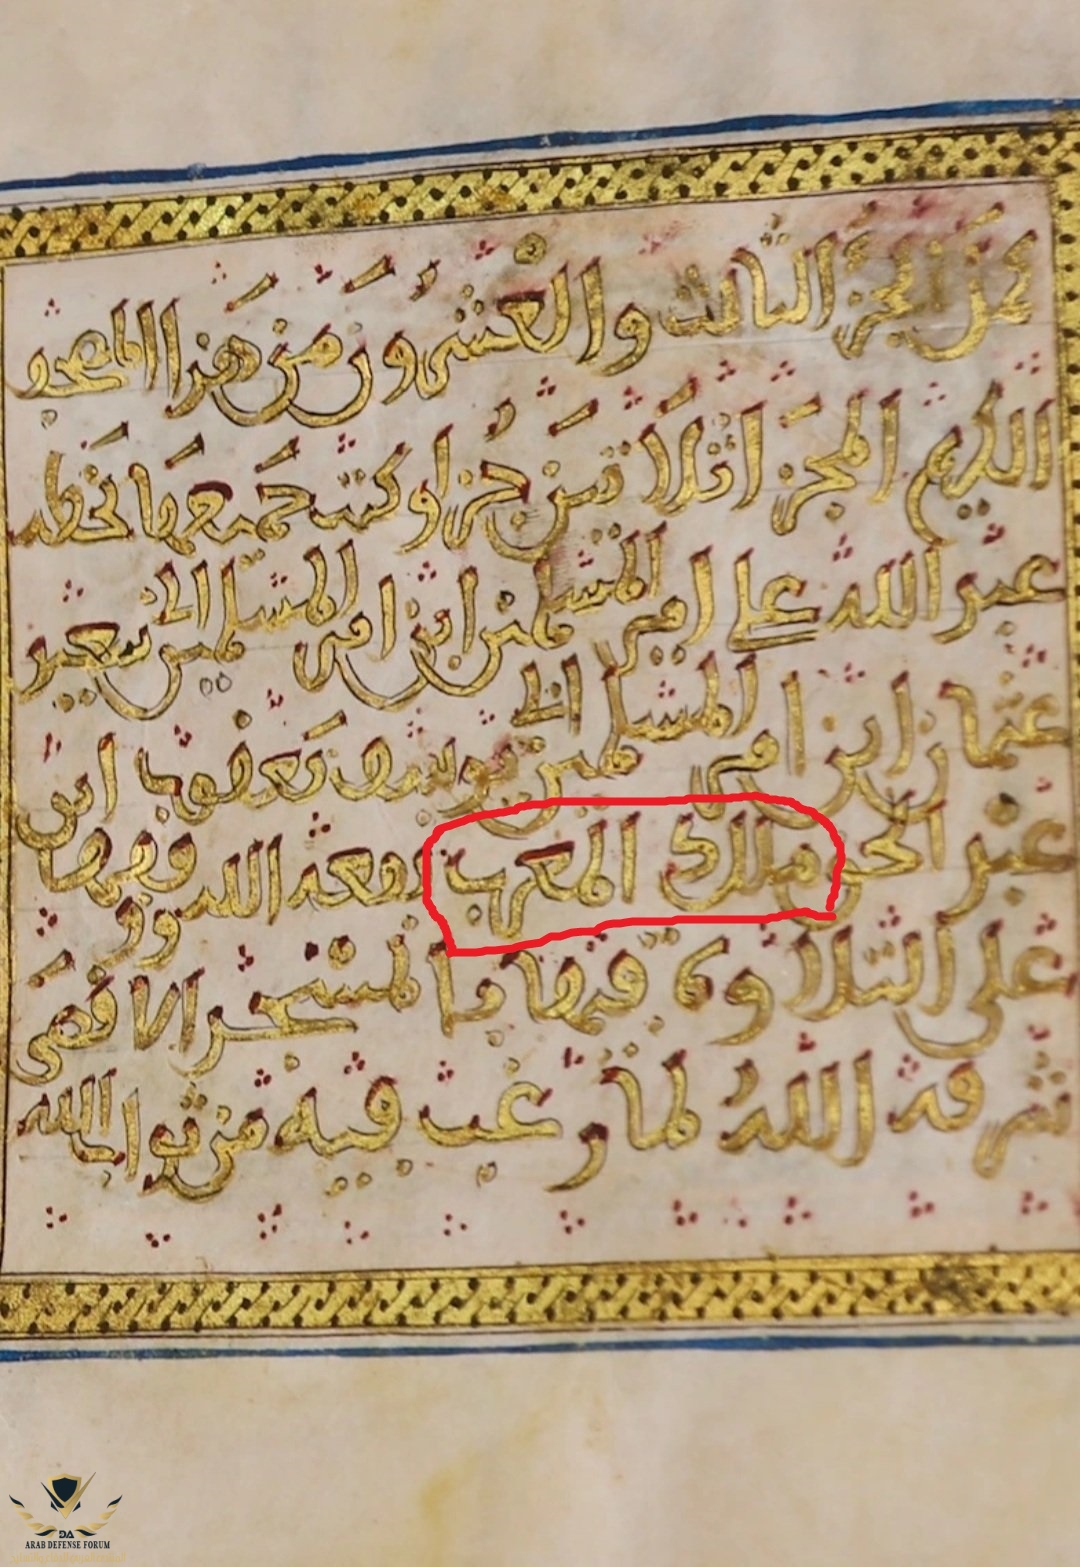 نجز الجزء الثالث والعشرون من هذا المصحف
الكريم المجزء اثلاثين جزءا وكتب جميعها بخطه
عبد الله علي امير المسلمين ابن امير المسلمين ابي سعيد
عثمان ابن امير المسلمين ابي يوسف يعقوب ابن
عبد الحق ملك المغرب نفعه الله وفيها
على التلاوة فيها بالمسجد الاقصى
شرفه الله لما رغب فيه من ثواب الله
DA
ARAB DEFENSE FORUM